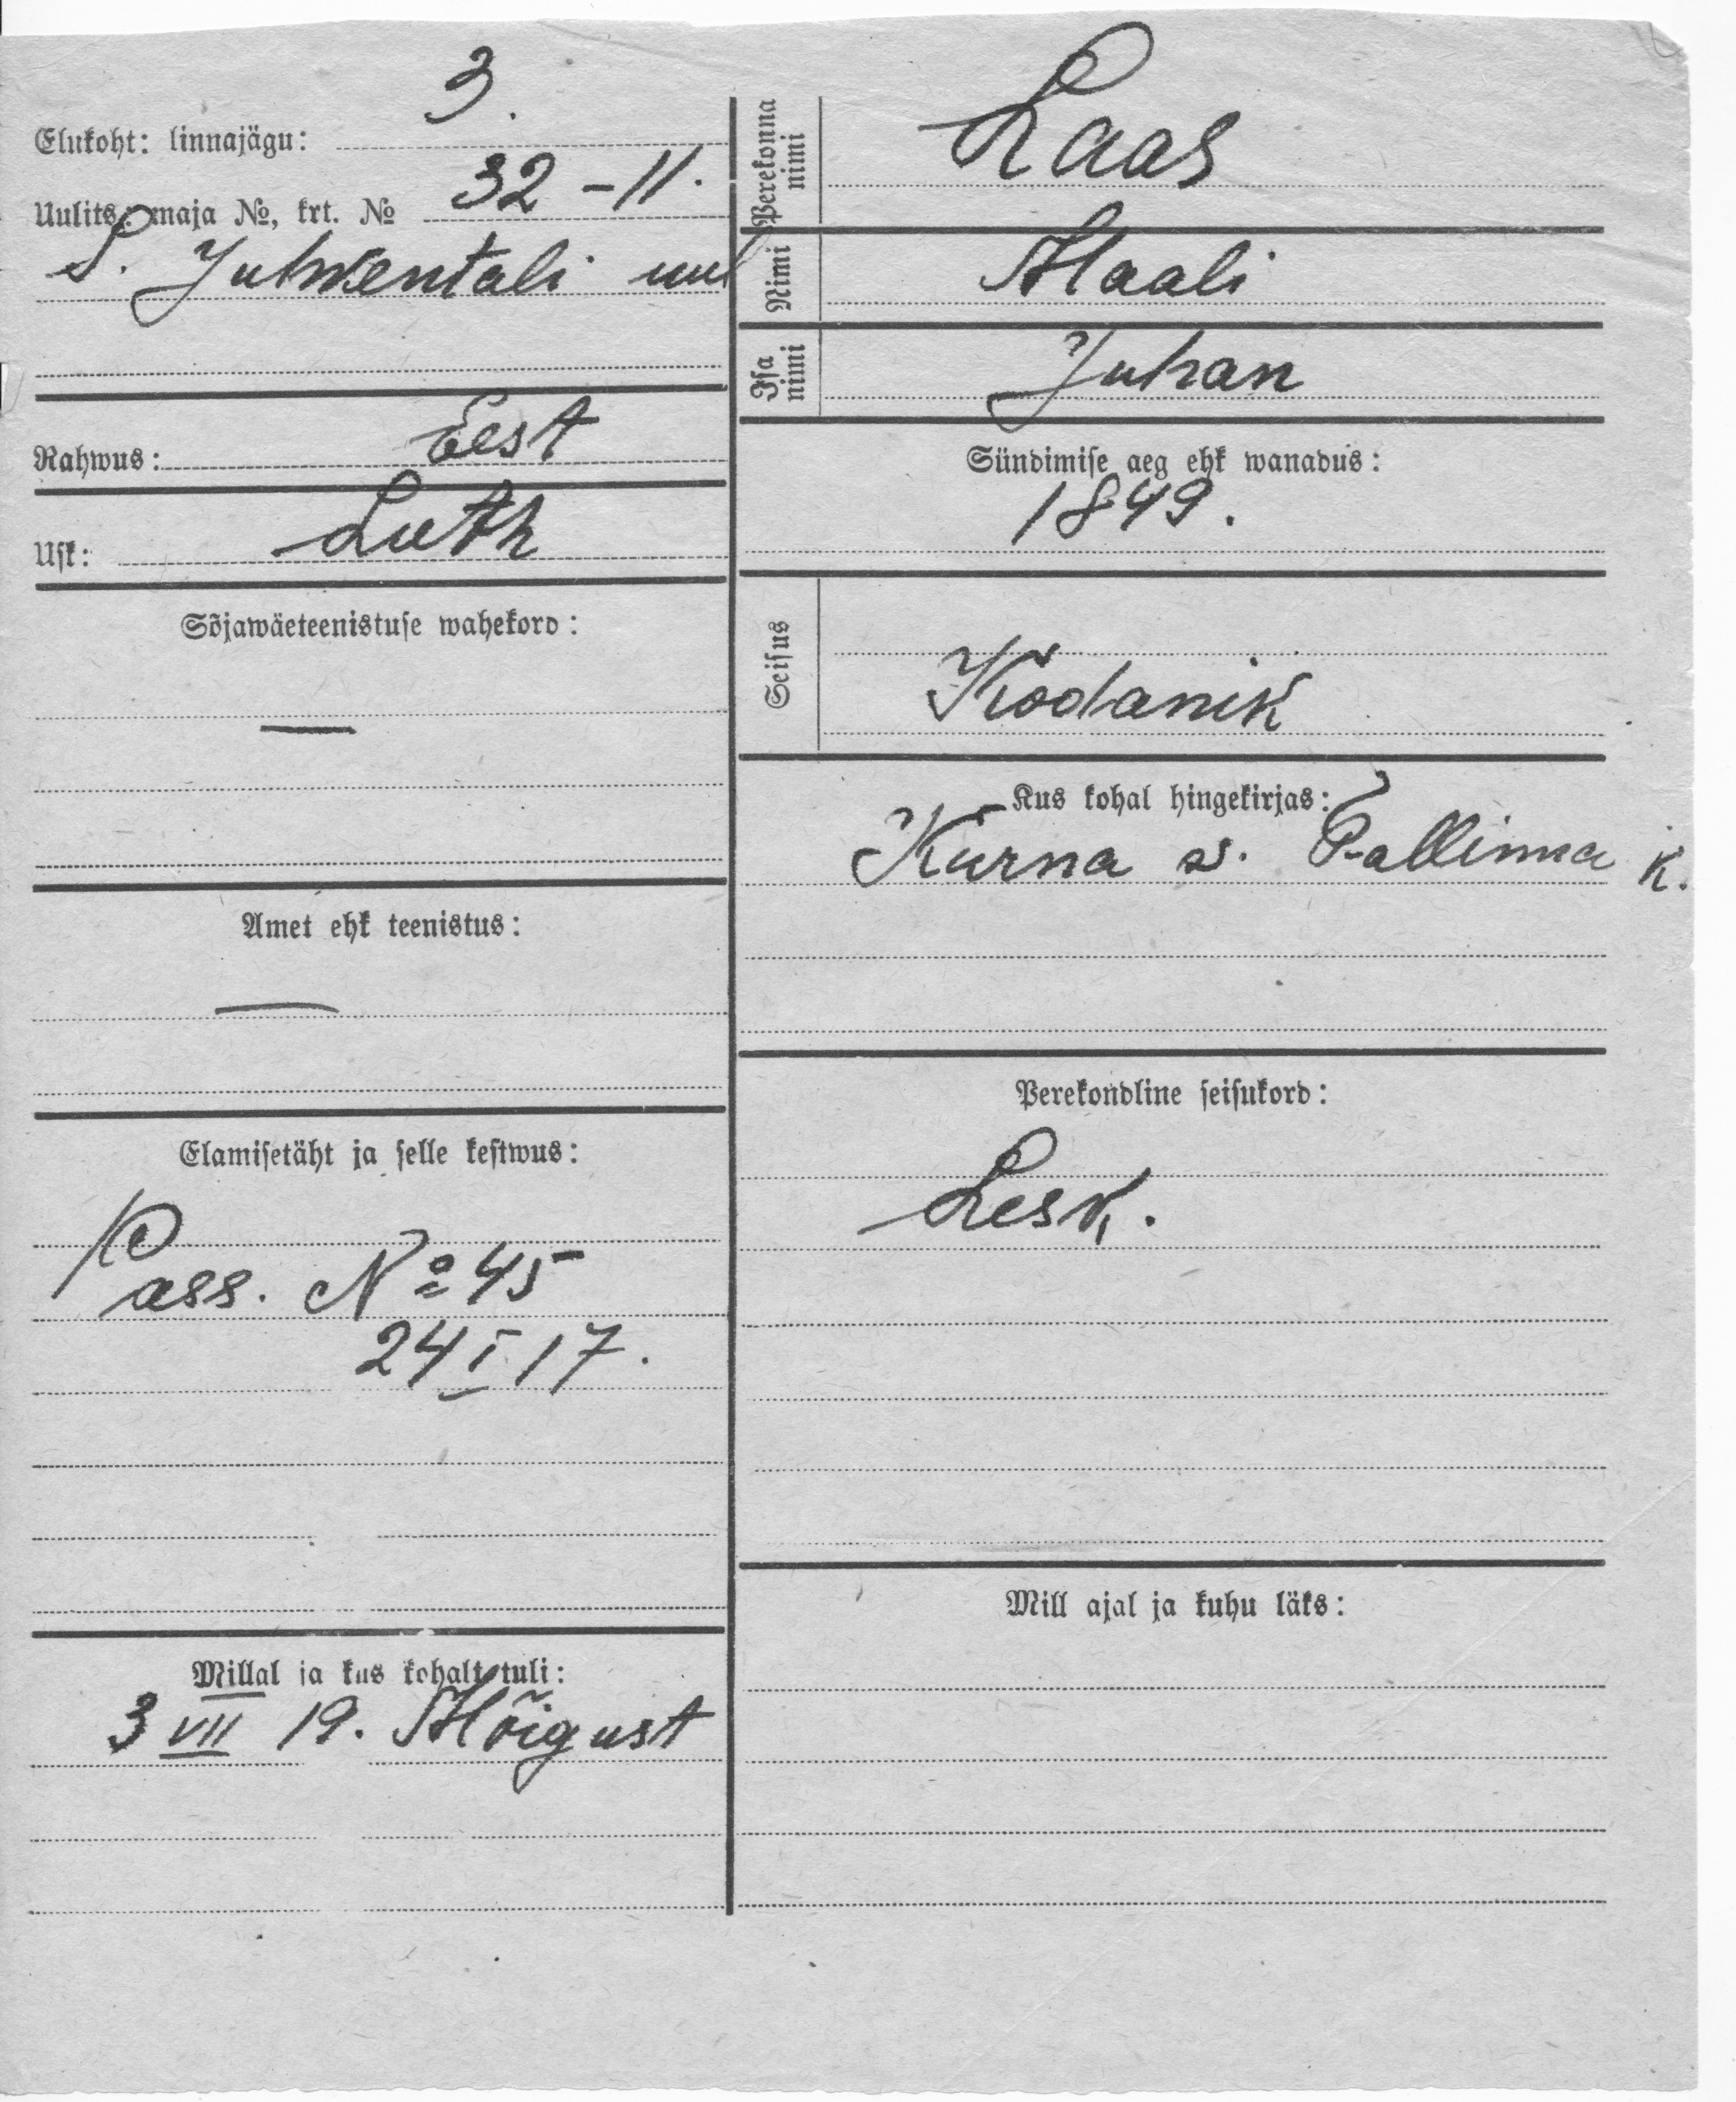 Elukoht: linnajägu: 3.
Uulits, maja №, krt. № 32 - 11.
S. Juhkentali uul
Rahwus: Eest
Usk: Luth
Sõjawäeteenistuse wahekord:
—
Amet ehk teenistus:
—
Elamisetäht ja selle kestwus:
Pass. № 45
24 I 17.
Millal ja kus kohalt tuli:
3 VII 19. Mõigust
Perekonna nimi Laas
Nimi Maali
Isa nimi Juhan
Sündimise aeg ehk wanadus:
1849.
Seisus
Kodanik
Kus kohal hingekirjas:
Kurna w. Tallinna k.
Perekondline seisukord:
Lesk.
Mill ajal ja kuhu läks: